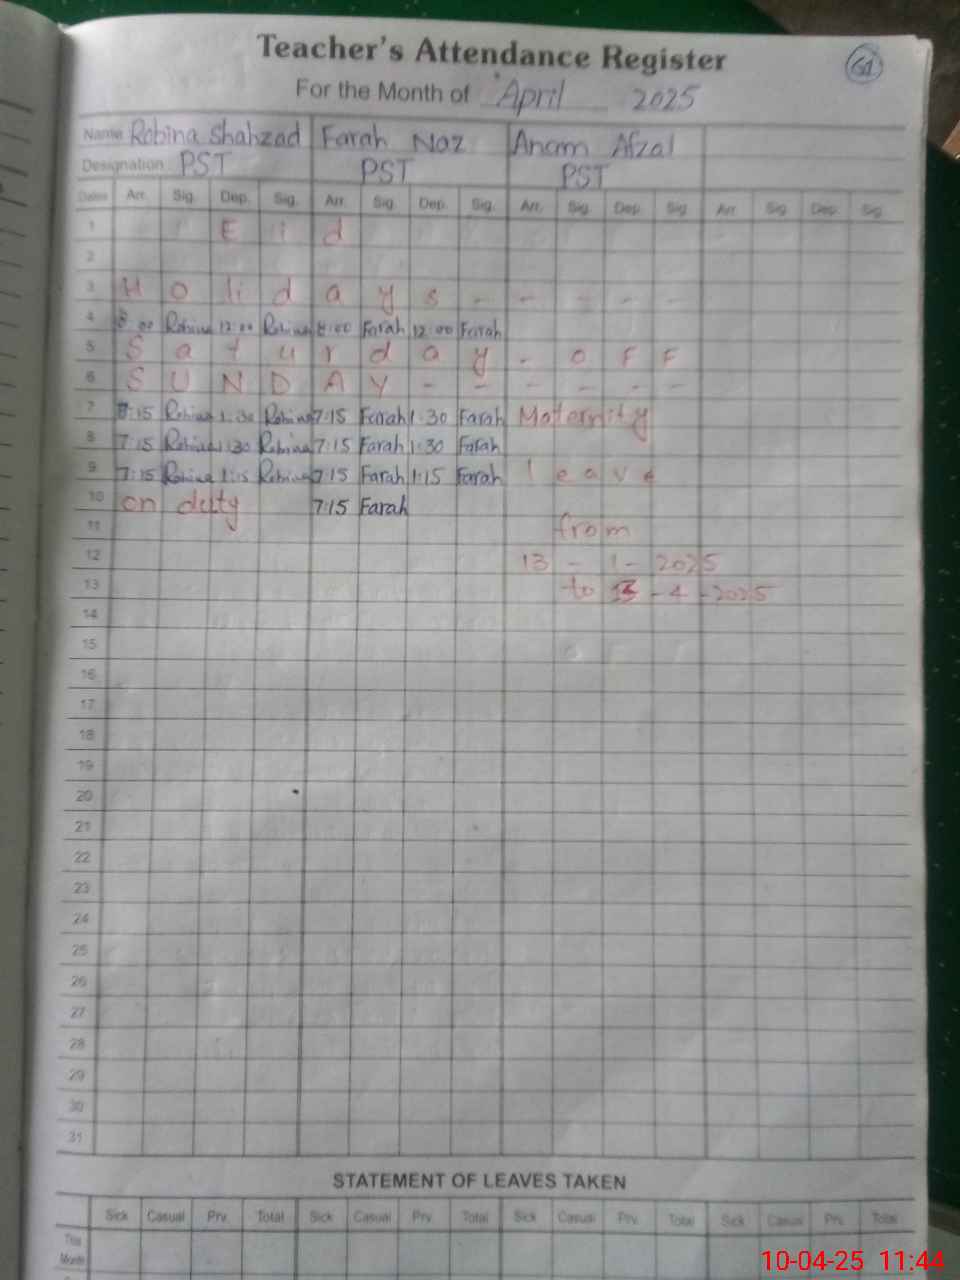 Teacher's Attendance Register
61
For the Month of April 2025
Name Robina Shahzad Farah Naz Anam Afzal
Designation PST PST PST
Dates Arr. Sig. Dep. Sig. Arr. Sig. Dep. Sig. Arr. Sig. Dep. Sig. Arr. Sig. Dep. Sig.
1 E i d
2
3 H o li d a y s - - - - -
4 8:00 Robina 12:00 Robina 8:00 Farah 12:00 Farah
5 S a t u r d a y - O F F
6 S U N D A Y - - - - - -
7 7:15 Robina 1:30 Robina 7:15 Farah 1:30 Farah Maternity
8 7:15 Robina 1:30 Robina 7:15 Farah 1:30 Farah
9 7:15 Robina 1:15 Robina 7:15 Farah 1:15 Farah l e a v e
10 on duty 7:15 Farah
11 from
12 13 - 1 - 2025
13 to - 4 - 2025
14
15
16
17
18
19
20
21
22
23
24
25
26
27
28
29
30
31
STATEMENT OF LEAVES TAKEN
Sick Casual Prv. Total Sick Casual Prv. Total Sick Casual Prv. Total Sick Casual Prv. Total
This
Month
10-04-25 11:44